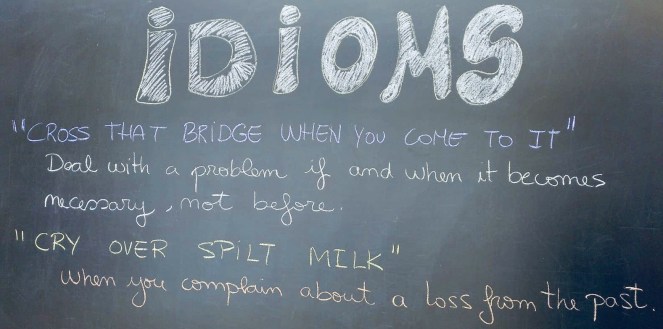 iDiOMS
"CROSS THAT BRiDGE WHEN YOU COME TO IT"
Deal with a problem if and when it becomes
necessary, not before.
"CRY OVER SPiLT MILK"
when you complain about a loss from the past.